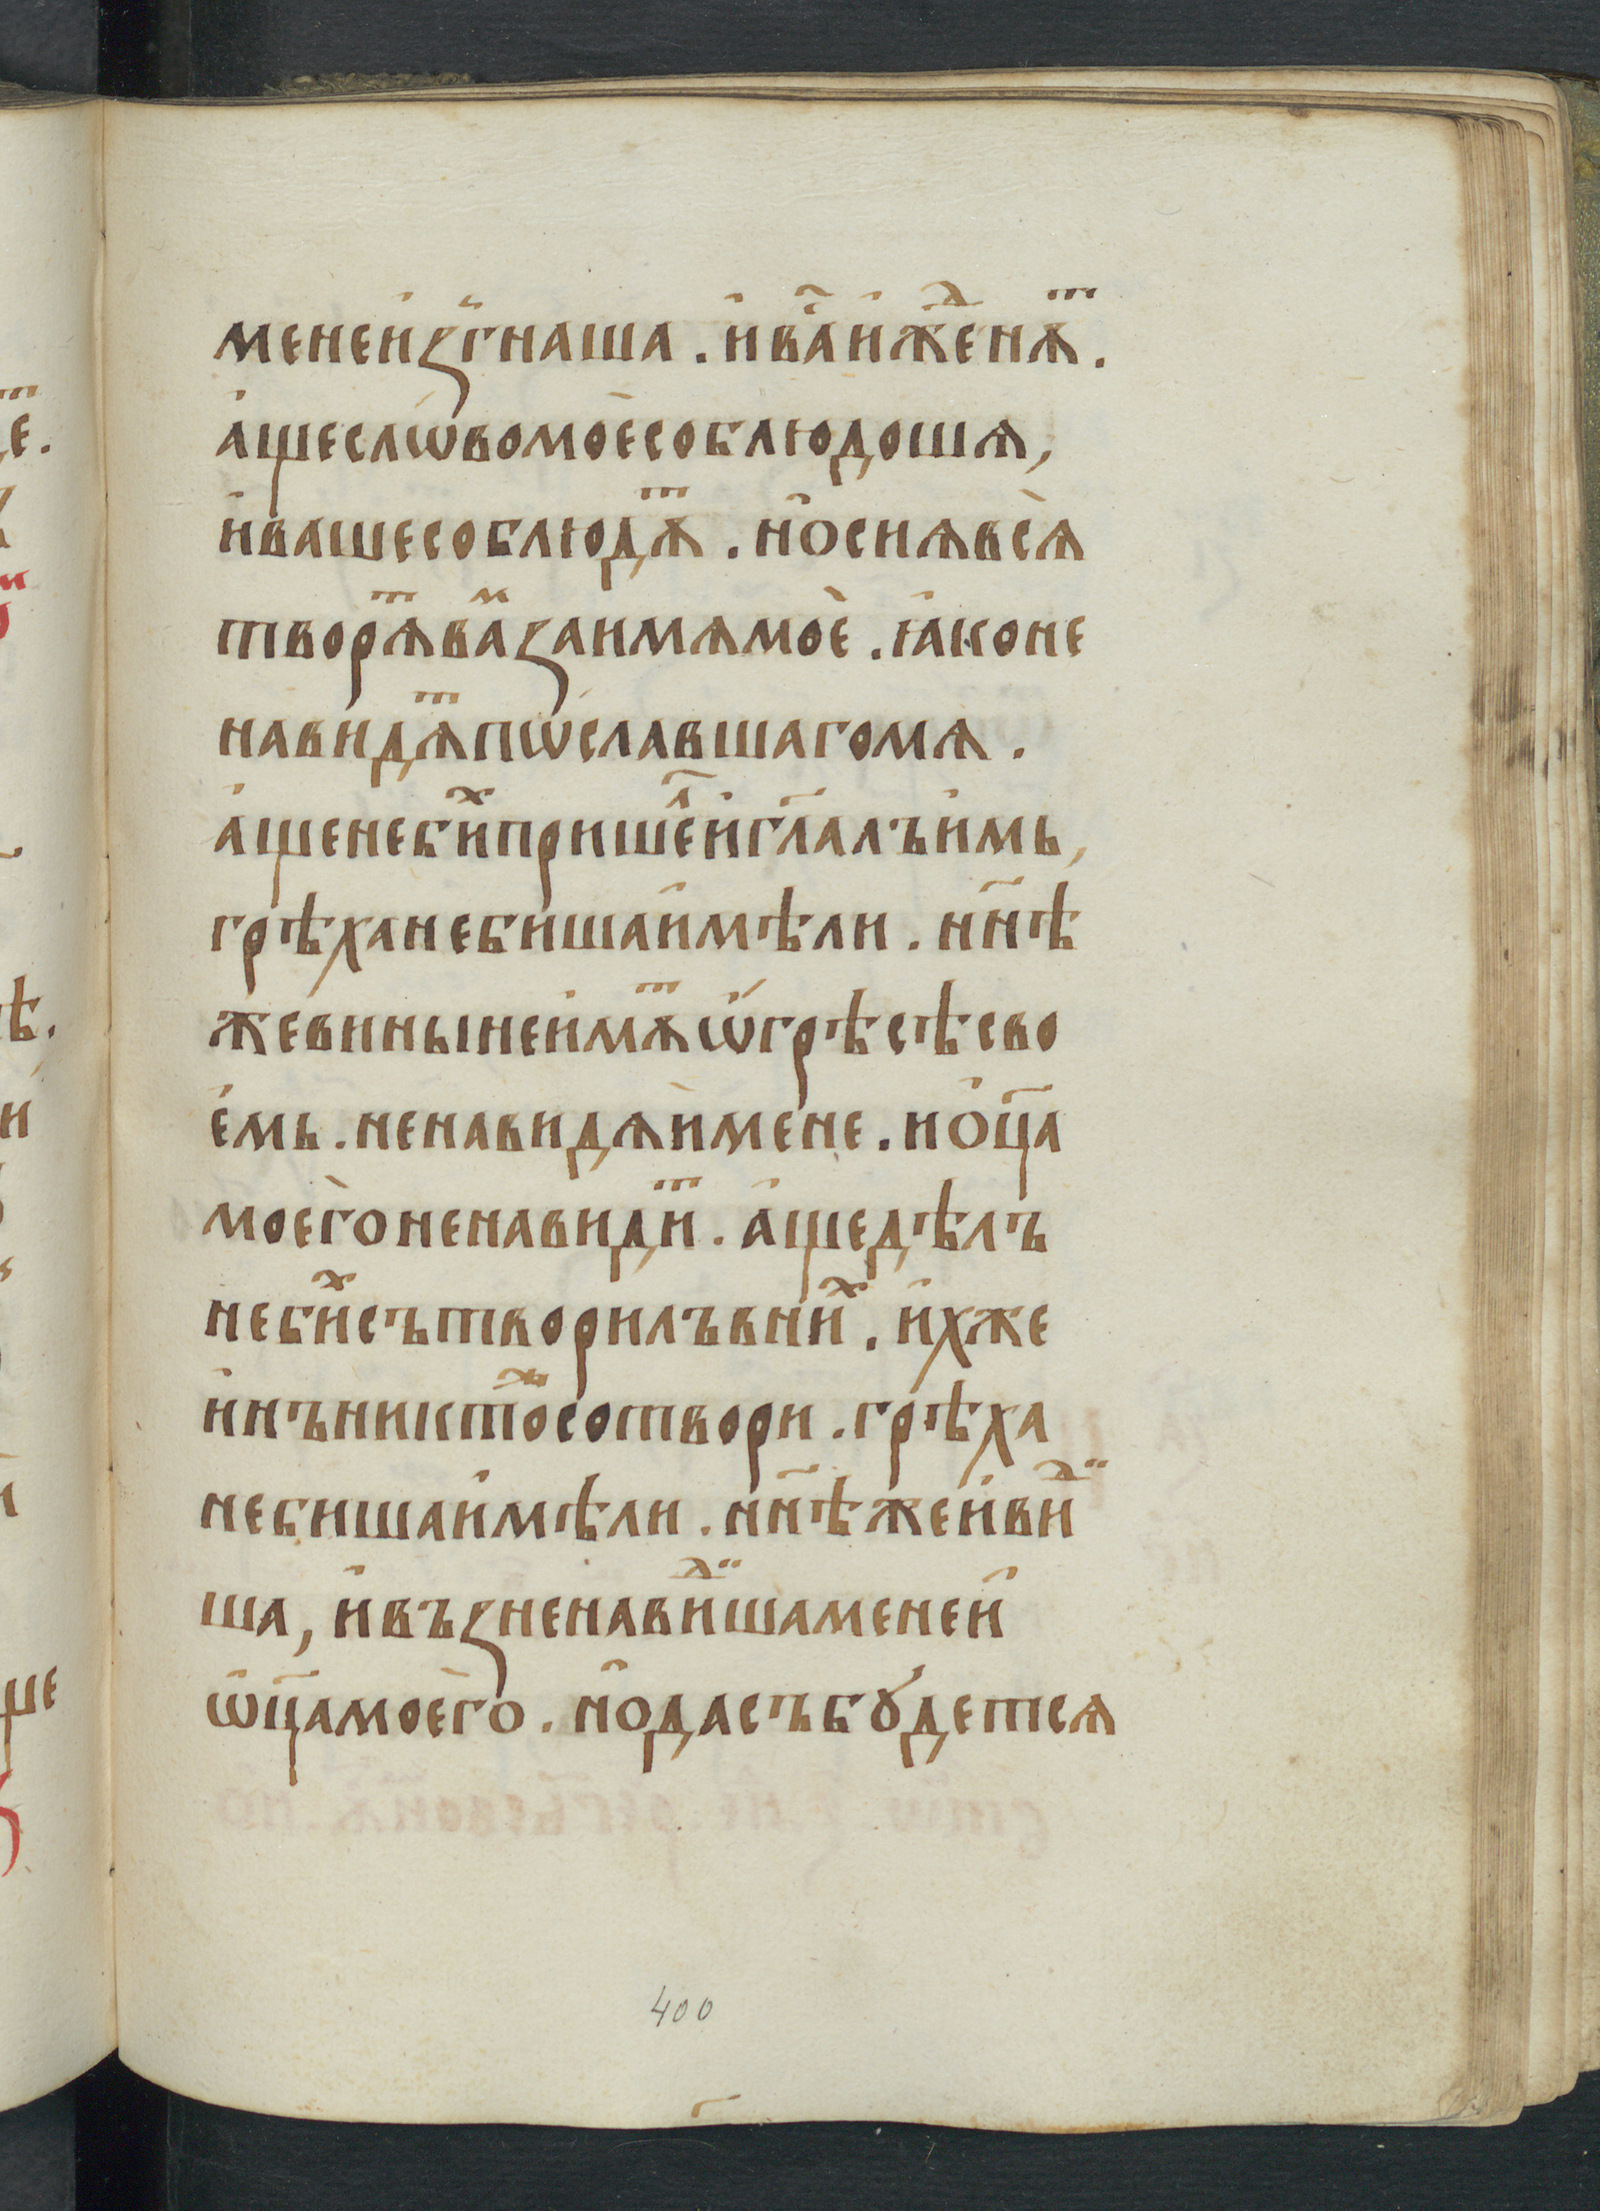 менеи҆ꙁгнаша . и҆ва҃и҆жⷣенѧⷮ .
а҆щеслѡ́вомоѐсоблюдошѧ,
и҆вашесоблюдѧⷮ . но҆сиѧвсѐѧ
творѧⷮваⷨꙁаимѧмоѐ . ꙗ҆коне
навидѧⷮпѡславшагомѧ .
а҆щенебиⷯпришеⷧ҇и҆гл҃алъи҆мь,
грѣханебишаи҆мѣли . нн҃ѣ
жевинынеи҆мѧⷮѡ҆грѣсѣсво
е҆мь . ненавидѧи҆мене . ио҆ц҃а
моего̀ненавидиⷮ . а҆щедѣлъ
небиⷯсътворилъвниⷯ . и҆хже
и҆нъниктоⷤсотвори . грѣха
небишаи҆мѣли . нн҃ѣжеи҆виⷣ
ша, и҆въꙁненавиⷣшаменеи҆
ѡ҆ц҃амоѐго . но҆дасъбꙋ́детсѧ
400